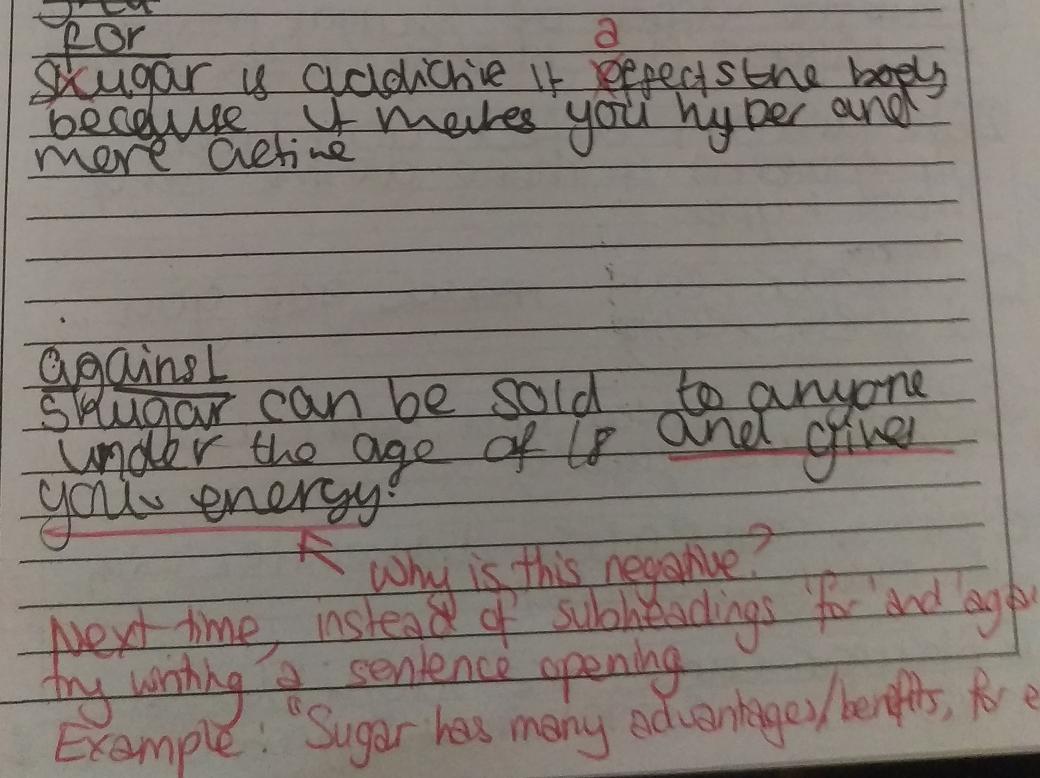 for
a
Sxugar is addictive It effects the body
because it makes you hyper and
more active
against
Shugar can be sold to anyone
under the age of 18 and gives
you energy.
Why is this negative?
Next time, instead of subheadings 'for' and 'again
try writing a sentence opening
Example: "Sugar has many advantages/benefits, for e